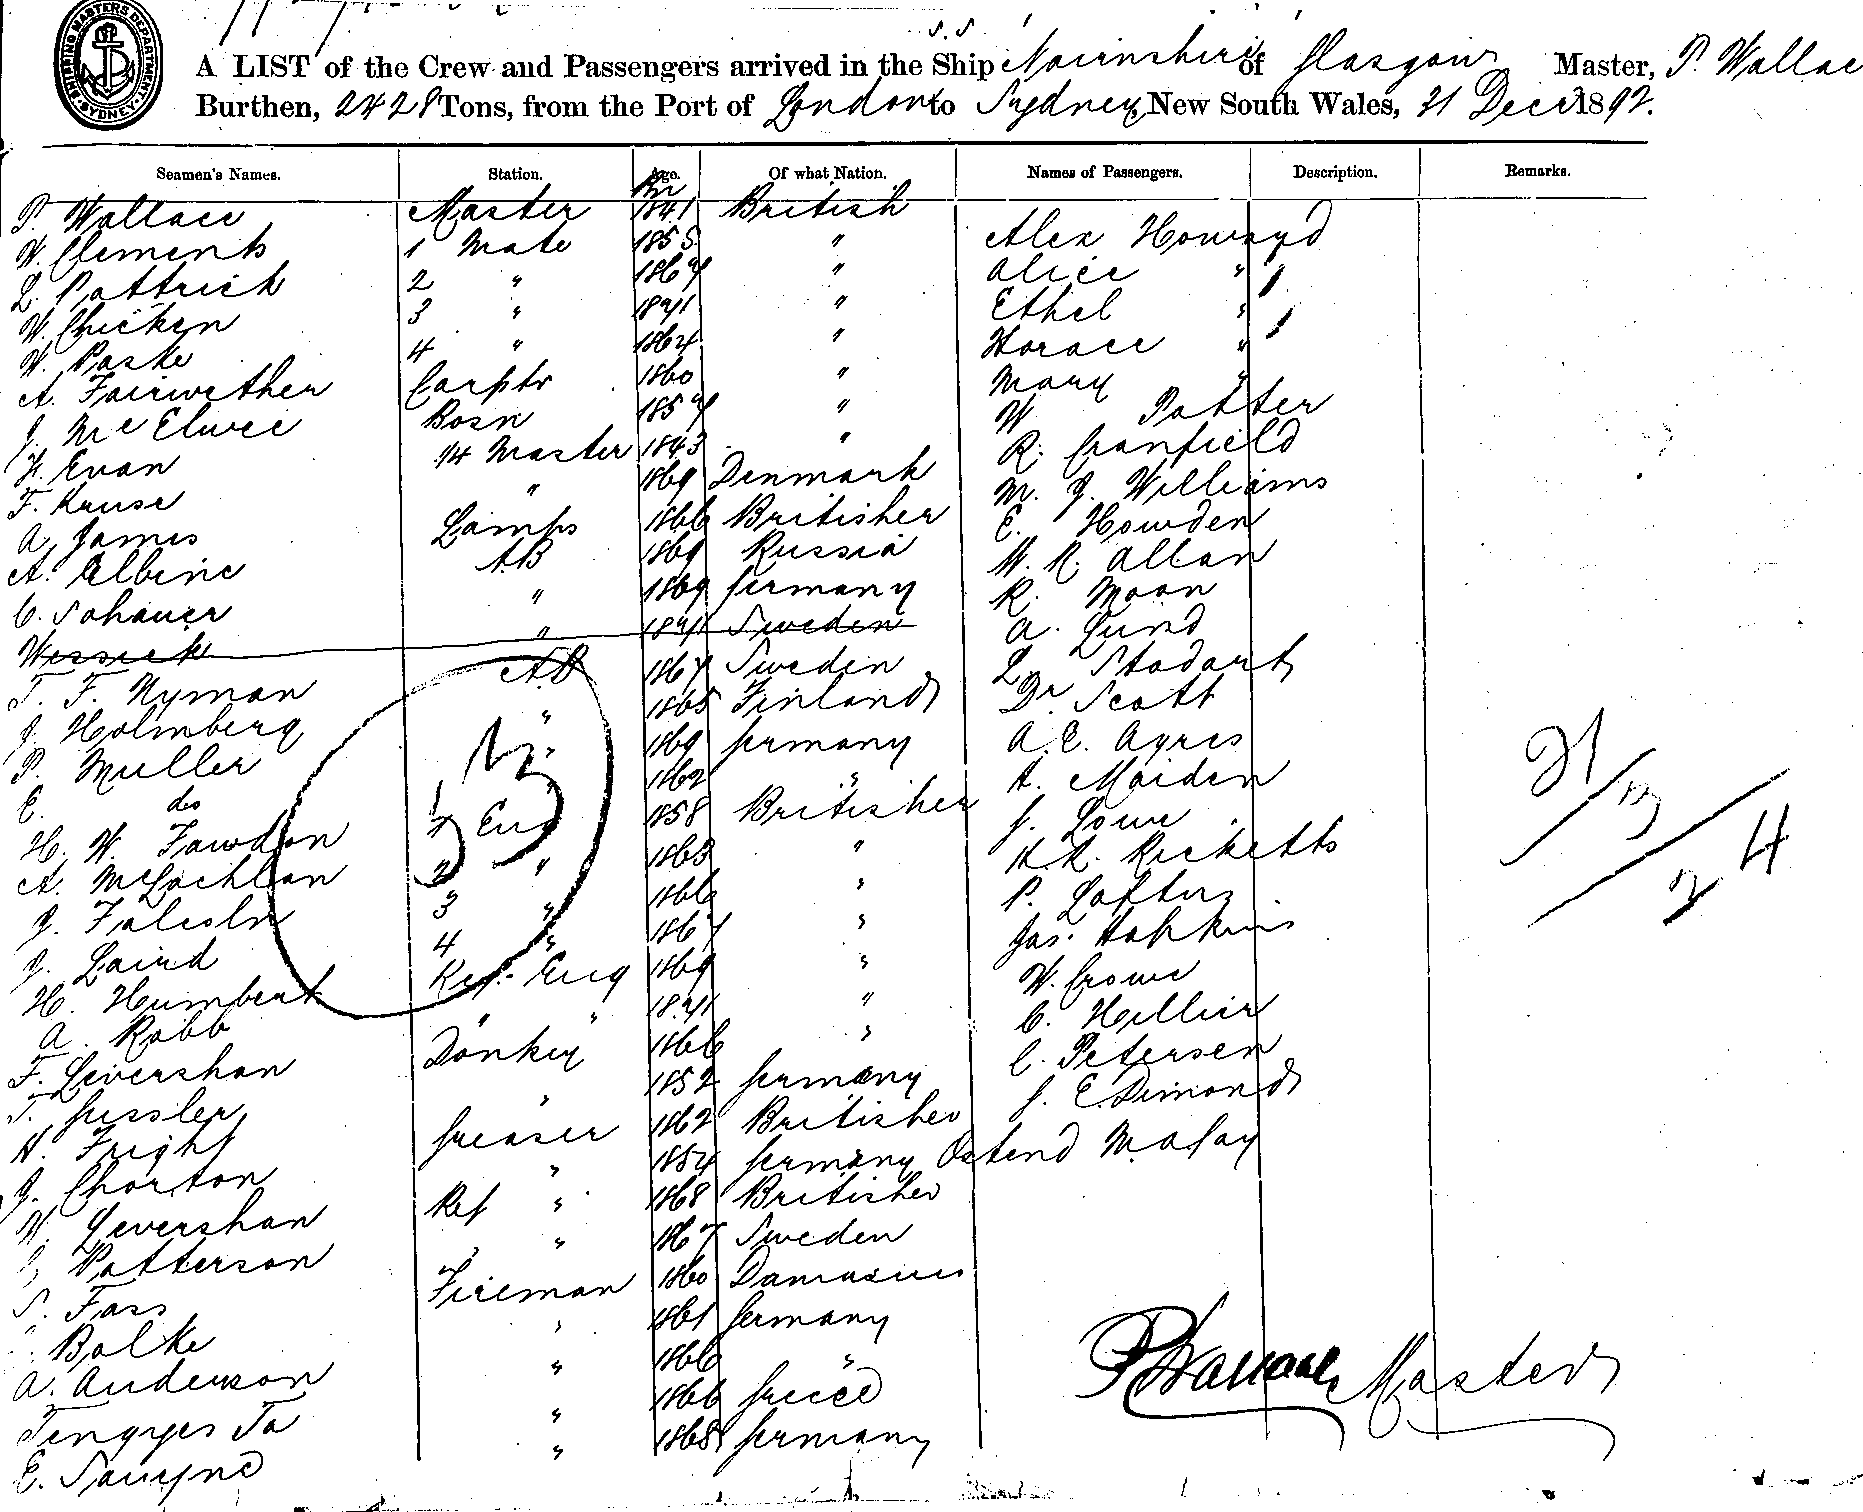 SHIPPING MASTERS DEPARTMENT SYDNEY
S.S.
A LIST of the Crew and Passengers arrived in the Ship Nairnshire of Glasgow Master, P. Wallac
Burthen, 2428 Tons, from the Port of London to Sydney, New South Wales, 31 Decr 1892.
Seamen's Names. Station. Age. Of what Nation. Names of Passengers. Description. Remarks.
P. Wallace Master 1841 British
W. Clements 1 Mate 1855 " Alex Howard
L. Pattrick 2 " 1867 " Alice "
W. Chicken 3 " 1871 " Ethel "
W. Paske 4 " 1864 " Horace "
A. Fairwether Carptr 1860 " Mary "
J. McElwee Bosn 1857 " W Potter
H. Evan 1/4 Master 1843 " R. Cranfield
F. Kruse " 1869 Denmark M. J. Williams
A. James Lamps 1866 Britisher E. Howden
A. Albine AB 1869 Russia W. R. Allan
C. Sohauer " 1869 Germany R. Moon
Wessick " 1871 Sweden A. Lund
T. F. Nyman AB 1867 Sweden L. Stodart
J. Holmberg " 1865 Finland Dr Scott
P. Muller " 1869 Germany A. E. Ayres
E. do 1862 " A. Maiden
H. W. Fawdon 1 Eng 1858 Britisher J. Lowe
A. McLachlan 2 " 1863 " H. R. Ricketts
J. 3 " 1866 " P. Loftus
J. Laird 4 " 1867 " Jas. Hopkins
H. Humbert Ref. Eng 1869 " W. Crowe
A. Robb " " 1871 " C. Hillier
F. Levershan Donkey 1866 " C. Petersen
T. Gessler " 1852 Germany J. E. Dimond
H. Fright Greaser 1862 Britisher
J. Chorton " 1854 Germany Ostend Malay
W. Levershan Ref " 1868 Britisher
Patterson " 1867 Sweden
S. Fass Fireman 1860
Balke " 1861 Germany
A. Anderson " 1866 "
Tengyes Ta " 1866 Greece
E. " 1868 Germany
P Wallace Master